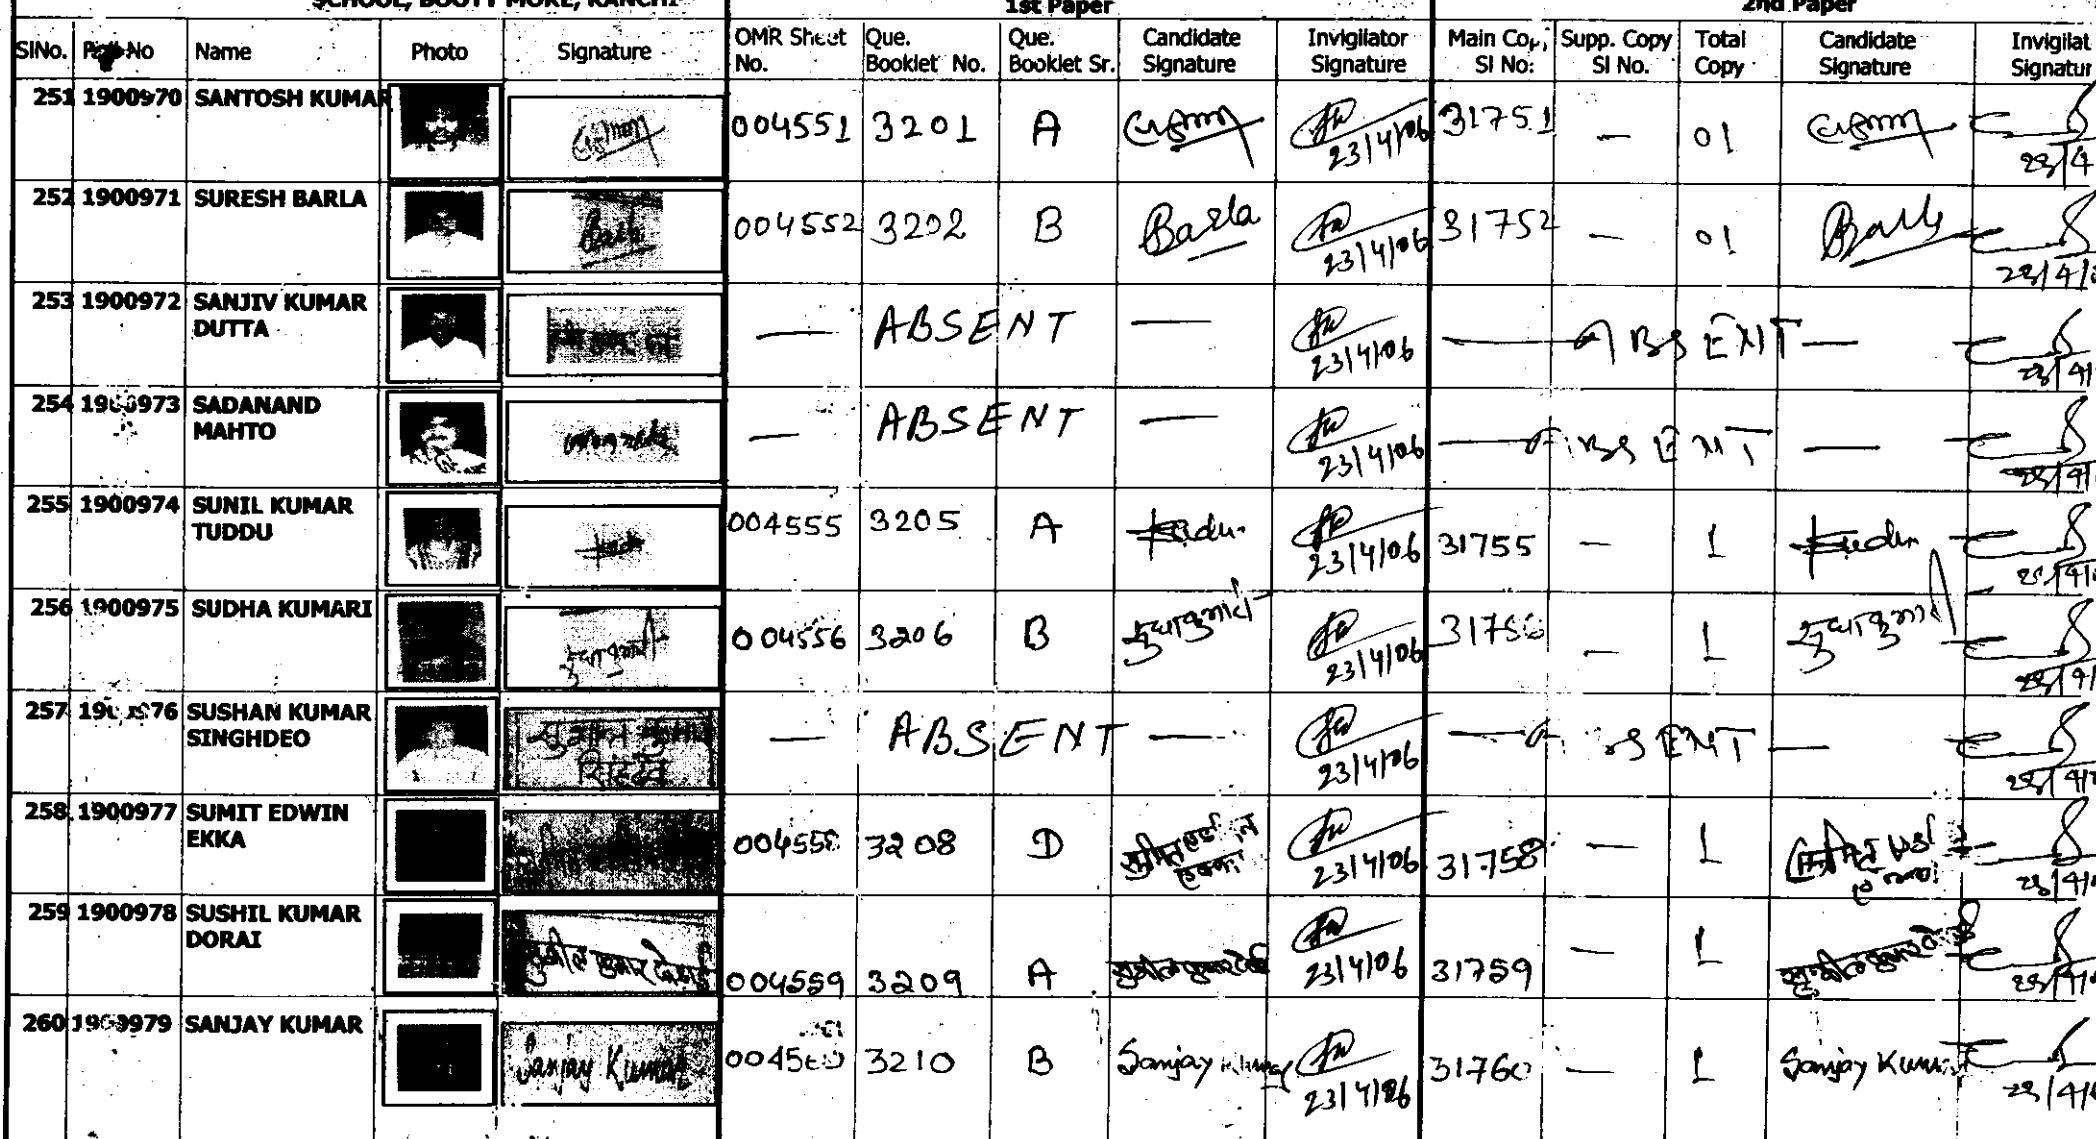 SCHOOL, BOOTY MORE, RANCHI 1st Paper 2nd Paper
SlNo. No Name Photo Signature OMR Sheet No. Que. Booklet No. Que. Booklet Sr. Candidate Signature Invigilator Signature Main Copy Sl No: Supp. Copy Sl No. Total Copy Candidate Signature Invigilat Signatur
251 1900970 SANTOSH KUMAR 004551 3201 A 23/4/06 31751 — 01 23/4
252 1900971 SURESH BARLA Barla 004552 3202 B Barla 23/4/06 31752 — 01 Barla 23/4/
253 1900972 SANJIV KUMAR DUTTA — ABSENT — 23/4/06 — ABSENT — 23/4/
254 1900973 SADANAND MAHTO — ABSENT — 23/4/06 — ABSENT — 23/4/
255 1900974 SUNIL KUMAR TUDDU 004555 3205 A 23/4/06 31755 — 1 23/4/
256 1900975 SUDHA KUMARI सुधा कुमारी 004556 3206 B सुधा कुमारी 23/4/06 31756 — 1 सुधा कुमारी 23/4/
257 1900976 SUSHAN KUMAR SINGHDEO — ABSENT — 23/4/06 — ABSENT — 23/4/
258 1900977 SUMIT EDWIN EKKA 004558 3208 D 23/4/06 31758 — 1 23/4/
259 1900978 SUSHIL KUMAR DORAI 004559 3209 A 23/4/06 31759 — 1 23/4/
260 1900979 SANJAY KUMAR Sanjay Kumar 004560 3210 B Sanjay Kumar 23/4/06 31760 — 1 Sanjay Kumar 23/4/